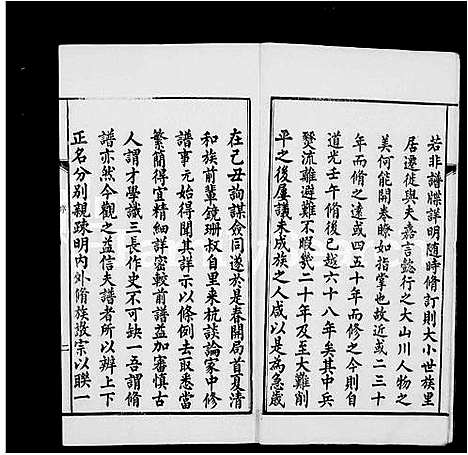 若非譜牒詳明隨時修訂則大小世族里
居遷徙與夫嘉言懿行之大山川人物之
美何能開卷瞭如指掌也故近或二三十
年而脩之遠或四五十年而修之今則自
道光壬午脩後已越六十八年矣其中兵
燹流離避難不暇幾二十年及至大難削
平之後屢議未成族之人咸以是為急歲
在己丑詢謀僉同遂於是春開局首夏清
和族前輩鏡珊叔自里來杭談論家中修
譜事元始得聞其詳示以條例去取悉當
繁簡得宜精細詳密較前譜益加審慎古
人謂才學識三長作史不可缺一吾謂脩
譜亦然今觀之益信夫譜者所以辨上下
正名分別親疎明內外脩族敬宗以聯一
序
二